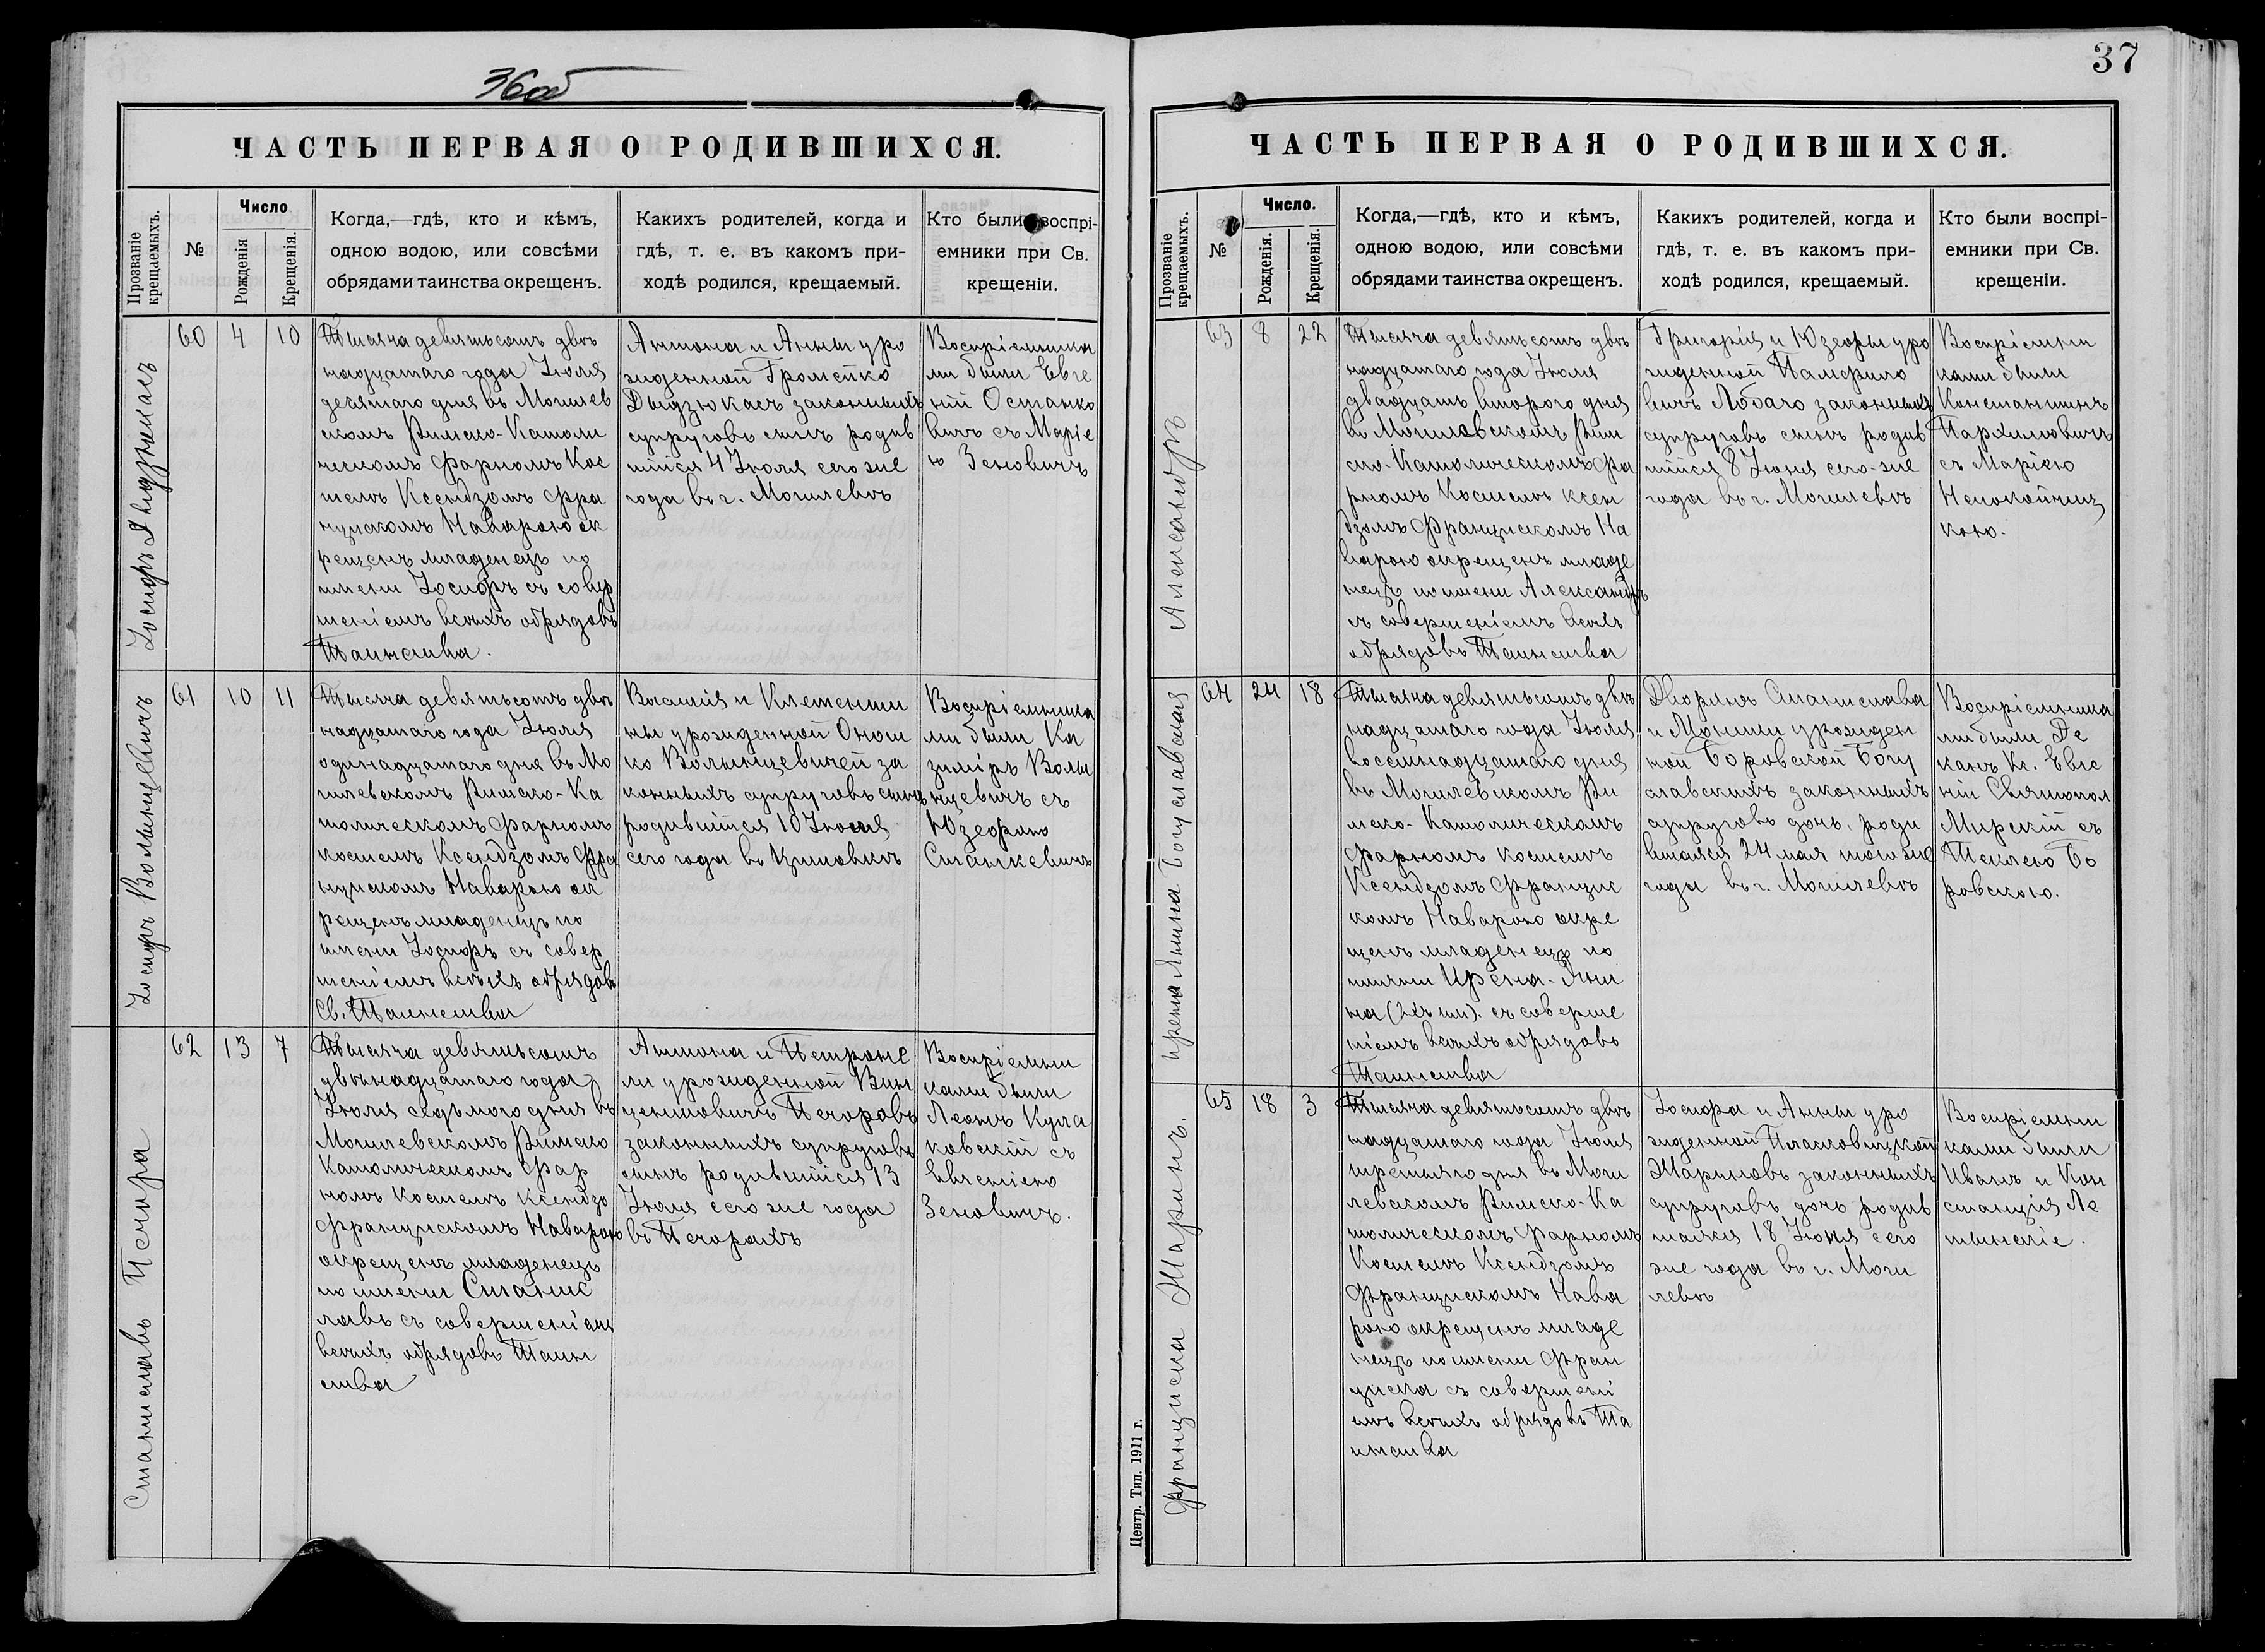 36об
ЧАСТЬ ПЕРВАЯ О РОДИВШИХСЯ.
Прозваніе крещаемыхъ.
№
Число
Рожденія
Крещенія.
Когда,—гдѣ, кто и кѣмъ,
одною водою, или совсѣми
обрядами таинства окрещенъ.
Какихъ родителей, когда и
гдѣ, т. е. въ какомъ при-
ходѣ родился, крещаемый.
Кто были воспрі-
емники при Св.
крещеніи.
Іосифъ
60
4
10
Тысяча девятьсотъ двѣ
надцатаго года Іюля
девятаго дня въ Могилев
скомъ Римско-Католи
ческомъ фарномъ Кос
телѣ Ксендзомъ Фра
нцискомъ Наварою ок
рещенъ младенецъ по
имени Іосифъ съ совер
шеніемъ всѣхъ обрядовъ
Таинства.
Антона и Анны уро
жденной Громейко
законныхъ
супруговъ сынъ родив
шійся 4 Іюля сего же
года въ г. Могилевѣ
Воспріемника
ми были Евге
ній Останко
вичъ съ Маріе
ю Зеновичъ
Іосифъ Волынцевичъ
61
10
11
Тысяча девятьсотъ двѣ
надцатаго года Іюля
одинадцатаго дня въ Мо
гилевскомъ Римско-Ка
толическомъ фарномъ
костелѣ Ксендзомъ Фра
нцискомъ Наварою ок
рещенъ младенецъ по
имени Іосифъ съ совер
шеніемъ всѣхъ обрядовъ
Св. Таинства
Василія и Клементи
ны урожденной Онош
ко Волынцевичей за
конныхъ супруговъ сынъ
родившійся 10 Іюня
сего года въ
Воспріемника
ми были Ка
зиміръ Волы
нцевичъ съ
Юзефою
Станкевичъ
Станиславъ Печора
62
13
7
Тысяча девятьсотъ
двѣнадцатаго года
Іюля седьмого дня въ
Могилевскомъ Римско
Католическомъ Фар
номъ Костелѣ Ксендзо
Францискомъ Наварою
окрещенъ младенецъ
по имени Станис
лавъ съ совершеніемъ
всѣхъ обрядовъ Таин
ства
Антона и Петроне
ли урожденной Вин
центовичъ Печоровъ
законныхъ супруговъ
сынъ родившійся 13
Іюня сего же года
въ Печорахъ
Воспріемни
ками были
Леонъ Кула
ковскій съ
Евгеніею
Зеновичъ.
37
ЧАСТЬ ПЕРВАЯ О РОДИВШИХСЯ.
Прозваніе крещаемыхъ.
№
Число.
Рожденія.
Крещенія.
Когда,—гдѣ, кто и кѣмъ,
одною водою, или совсѣми
обрядами таинства окрещенъ.
Какихъ родителей, когда и
гдѣ, т. е. въ какомъ при-
ходѣ родился, крещаемый.
Кто были воспрі-
емники при Св.
крещеніи.
Александръ
63
8
22
Тысяча девятьсотъ двѣ
надцатаго года Іюля
двадцать второго дня
въ Могилевскомъ Рим
ско-Католическомъ фа
рномъ Костелѣ ксен
дзомъ Францискомъ На
варою окрещенъ младе
нецъ по имени Александръ
съ совершеніемъ всѣхъ
обрядовъ Таинства
Григорія и Юзефы уро
жденной Памфило
вичъ Лобаго законныхъ
супруговъ сынъ родив
шійся 8 Іюня сего-же
года въ г. Могилевѣ
Воспріемни
ками были
Константинъ
Пархимовичъ
съ Маріею
Непокойчиц
кою.
Ирена Янина Богуславская
64
24
18
Тысяча девятьсотъ двѣ
надцатаго года Іюля
восемнадцатаго дня
въ Могилевскомъ Ри
мско-Католическомъ
фарномъ костелѣ
Ксендзомъ Францис
комъ Наварою окре
щенъ младенецъ по
имени Ирена-Яни
на (2хъ им). съ соверше
ніемъ всѣхъ обрядовъ
Таинства
Дворянъ Станислава
и Монини урожден
ной Боровской Богу
славскихъ законныхъ
супруговъ дочь, роди
вшаяся 24 мая того же
года въ г. Могилевѣ
Воспріемника
ми были Де
канъ Кс. Евге
ній Святопол
Мирскій съ
Теклею Бо
ровскою.
Франциска Жаринъ.
65
18
3
Тысяча девятьсотъ двѣ
надцатаго года Іюля
третьяго дня въ Моги
левскомъ Римско-Ка
толическомъ фарномъ
Костелѣ Ксендзомъ
Францискомъ Нава
рою окрещенъ младе
нецъ по имени Фран
циска съ совершені
емъ всѣхъ обрядовъ Та
инства
Іосифа и Анны уро
жденной Пласковицкой
Жариновъ законныхъ
супруговъ дочь родив
шаяся 18 Іюня сего
же года въ г. Моги
левѣ
Воспріемни
ками были
Иванъ и Кон
станція Ле
тынскіе.
Центр. Тип. 1911 г.